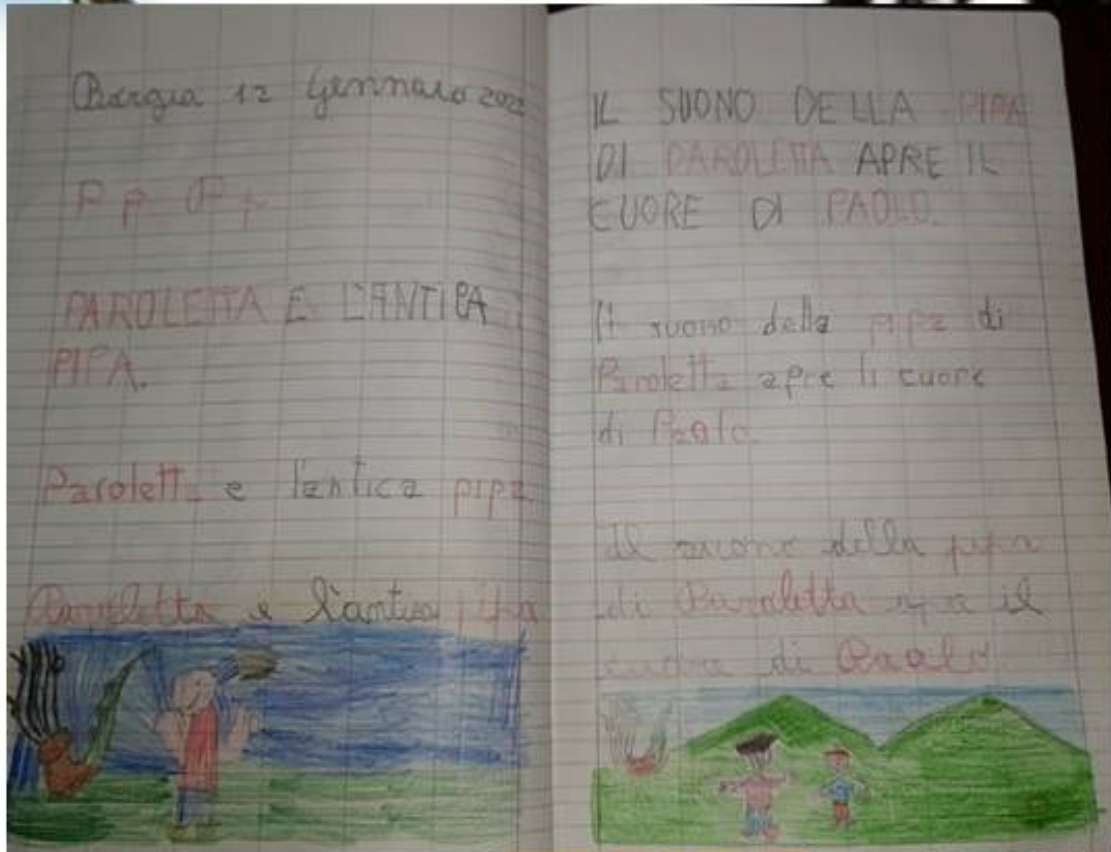 Borgia 12 Gennaio 2022
P p P p
PAROLETTA E L'ANTICA
PIPA.
Paroletta e l'antica pipa
Paroletta e l'antica pipa
IL SUONO DELLA PIPA
DI PAROLETTA APRE IL
CUORE DI PAOLO.
Il suono della pipa di
Paroletta apre il cuore
di Paolo.
Il suono della pipa
di Paroletta il
cuore di Paolo